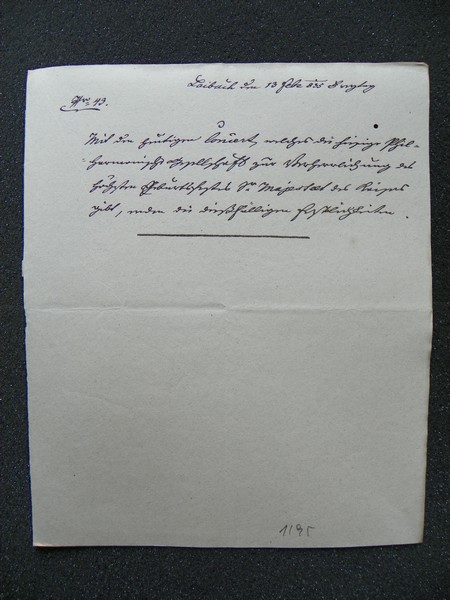 Laibach den 13 Feb. 835 Freytag
Nro. 43.
Mit dem heutigen Concert, welches die hiesige Phil-
harmonische Gesellschaft zur Verherrlichung des
höchsten Geburtsfestes Sr Majestät des Kaisers
gibt, enden die dießfälligen Festlichkeiten.
1195